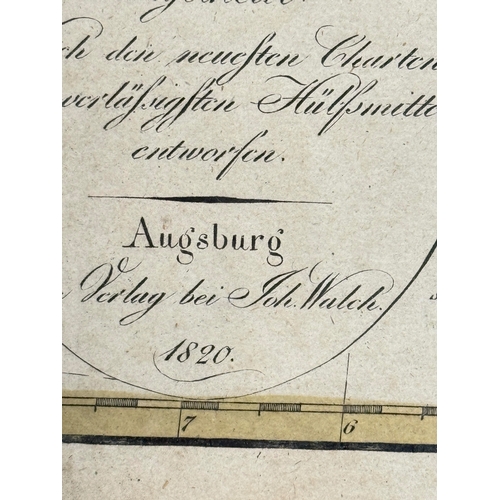 ch den neuesten Charten
verläßigsten Hülfsmitte
entworfen.
Augsburg
Verlag bei Joh. Walch.
1820.
7 6